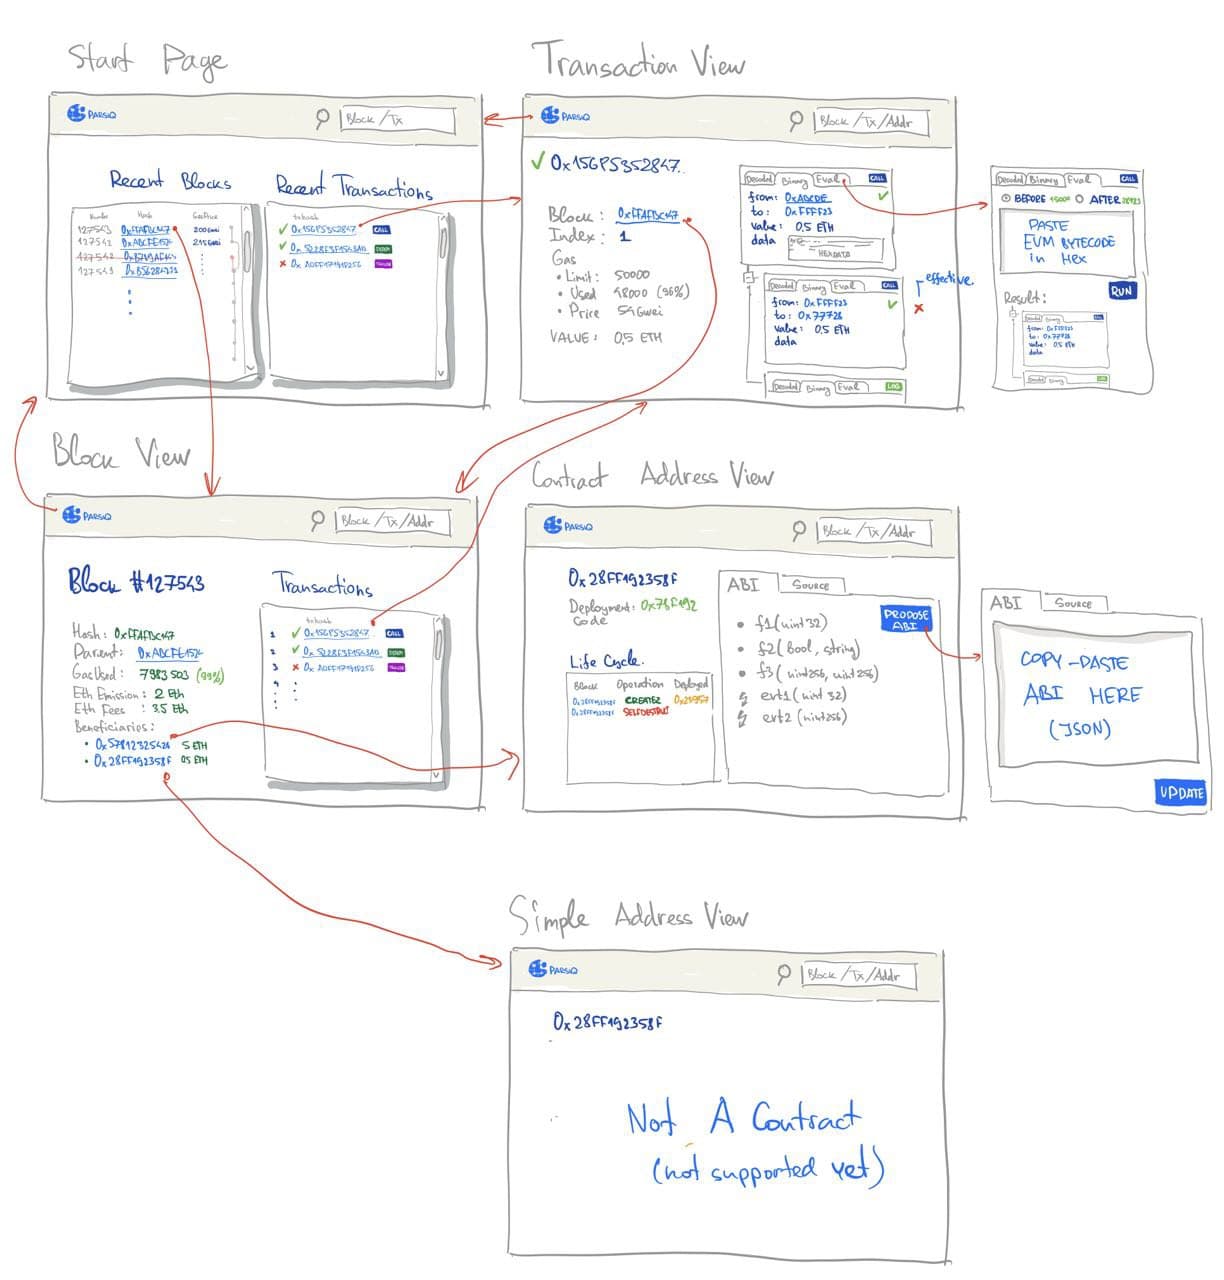 Start Page
PARSIQ
Block/Tx
Recent Blocks
Number Hash GasPrice
127543 0xFFAFDC147 200Gwei
127542 0xABCFE1524 215Gwei
127542
127543
Recent Transactions
txhash
✓ 0x156P5352847 CALL
✓ 0x5228F3F154310
✗ 0x A0FF17191P256
Transaction View
PARSIQ
Block/Tx/Addr
✓ 0x156P5352847..
Block: 0xFFAFDC147
Index: 1
Gas
• Limit: 50000
• Used 48000 (96%)
• Price 54Gwei
VALUE: 0,5 ETH
Decoded Binary Eval CALL
from: 0xABCDE ✓
to: 0xFFFF23
value: 0,5 ETH
data
HEXDATA
Decoded Binary Eval CALL
from: 0xFFFF23 ✓
to: 0x77728
value: 0,5 ETH
data
Decoded Binary Eval LOG
effective.
✗
Decoded Binary Eval CALL
BEFORE AFTER
PASTE
EVM BYTECODE
in Hex
RUN
Result:
Decoded Binary
from: 0xFFFF23
to: 0x77728
value: 0,5 ETH
data
Decoded Binary LOG
Block View
PARSIQ
Block/Tx/Addr
Block #127543
Hash: 0xFFAFDC147
Parent: 0xABCFE1524
GasUsed: 7983503 (99%)
Eth Emission: 2 Eth
Eth Fees: 3.5 Eth
Beneficiaries:
• 0x57812325426 5 ETH
• 0x28FF192358F 0.5 ETH
Transactions
txhash
1 ✓ 0x156P5352847 CALL
2 ✓ 0x5228F3F154310
3 ✗ 0x A0FF17191P256
4
Contract Address View
PARSIQ
Block/Tx/Addr
0x28FF192358F
Deployment: 0x78F192
Code
Life Cycle.
Block Operation Deployed
0x28FF192358F CREATE2 0x25957
0x28FF192358F SELFDESTRUCT
ABI Source
PROPOSE
ABI
• f1(uint32)
• f2(bool, string)
• f3(uint256, uint256)
evt1(uint 32)
evt2(uint256)
ABI Source
COPY-PASTE
ABI HERE
(JSON)
UPDATE
Simple Address View
PARSIQ
Block/Tx/Addr
0x28FF192358F
Not A Contract
(not supported yet)